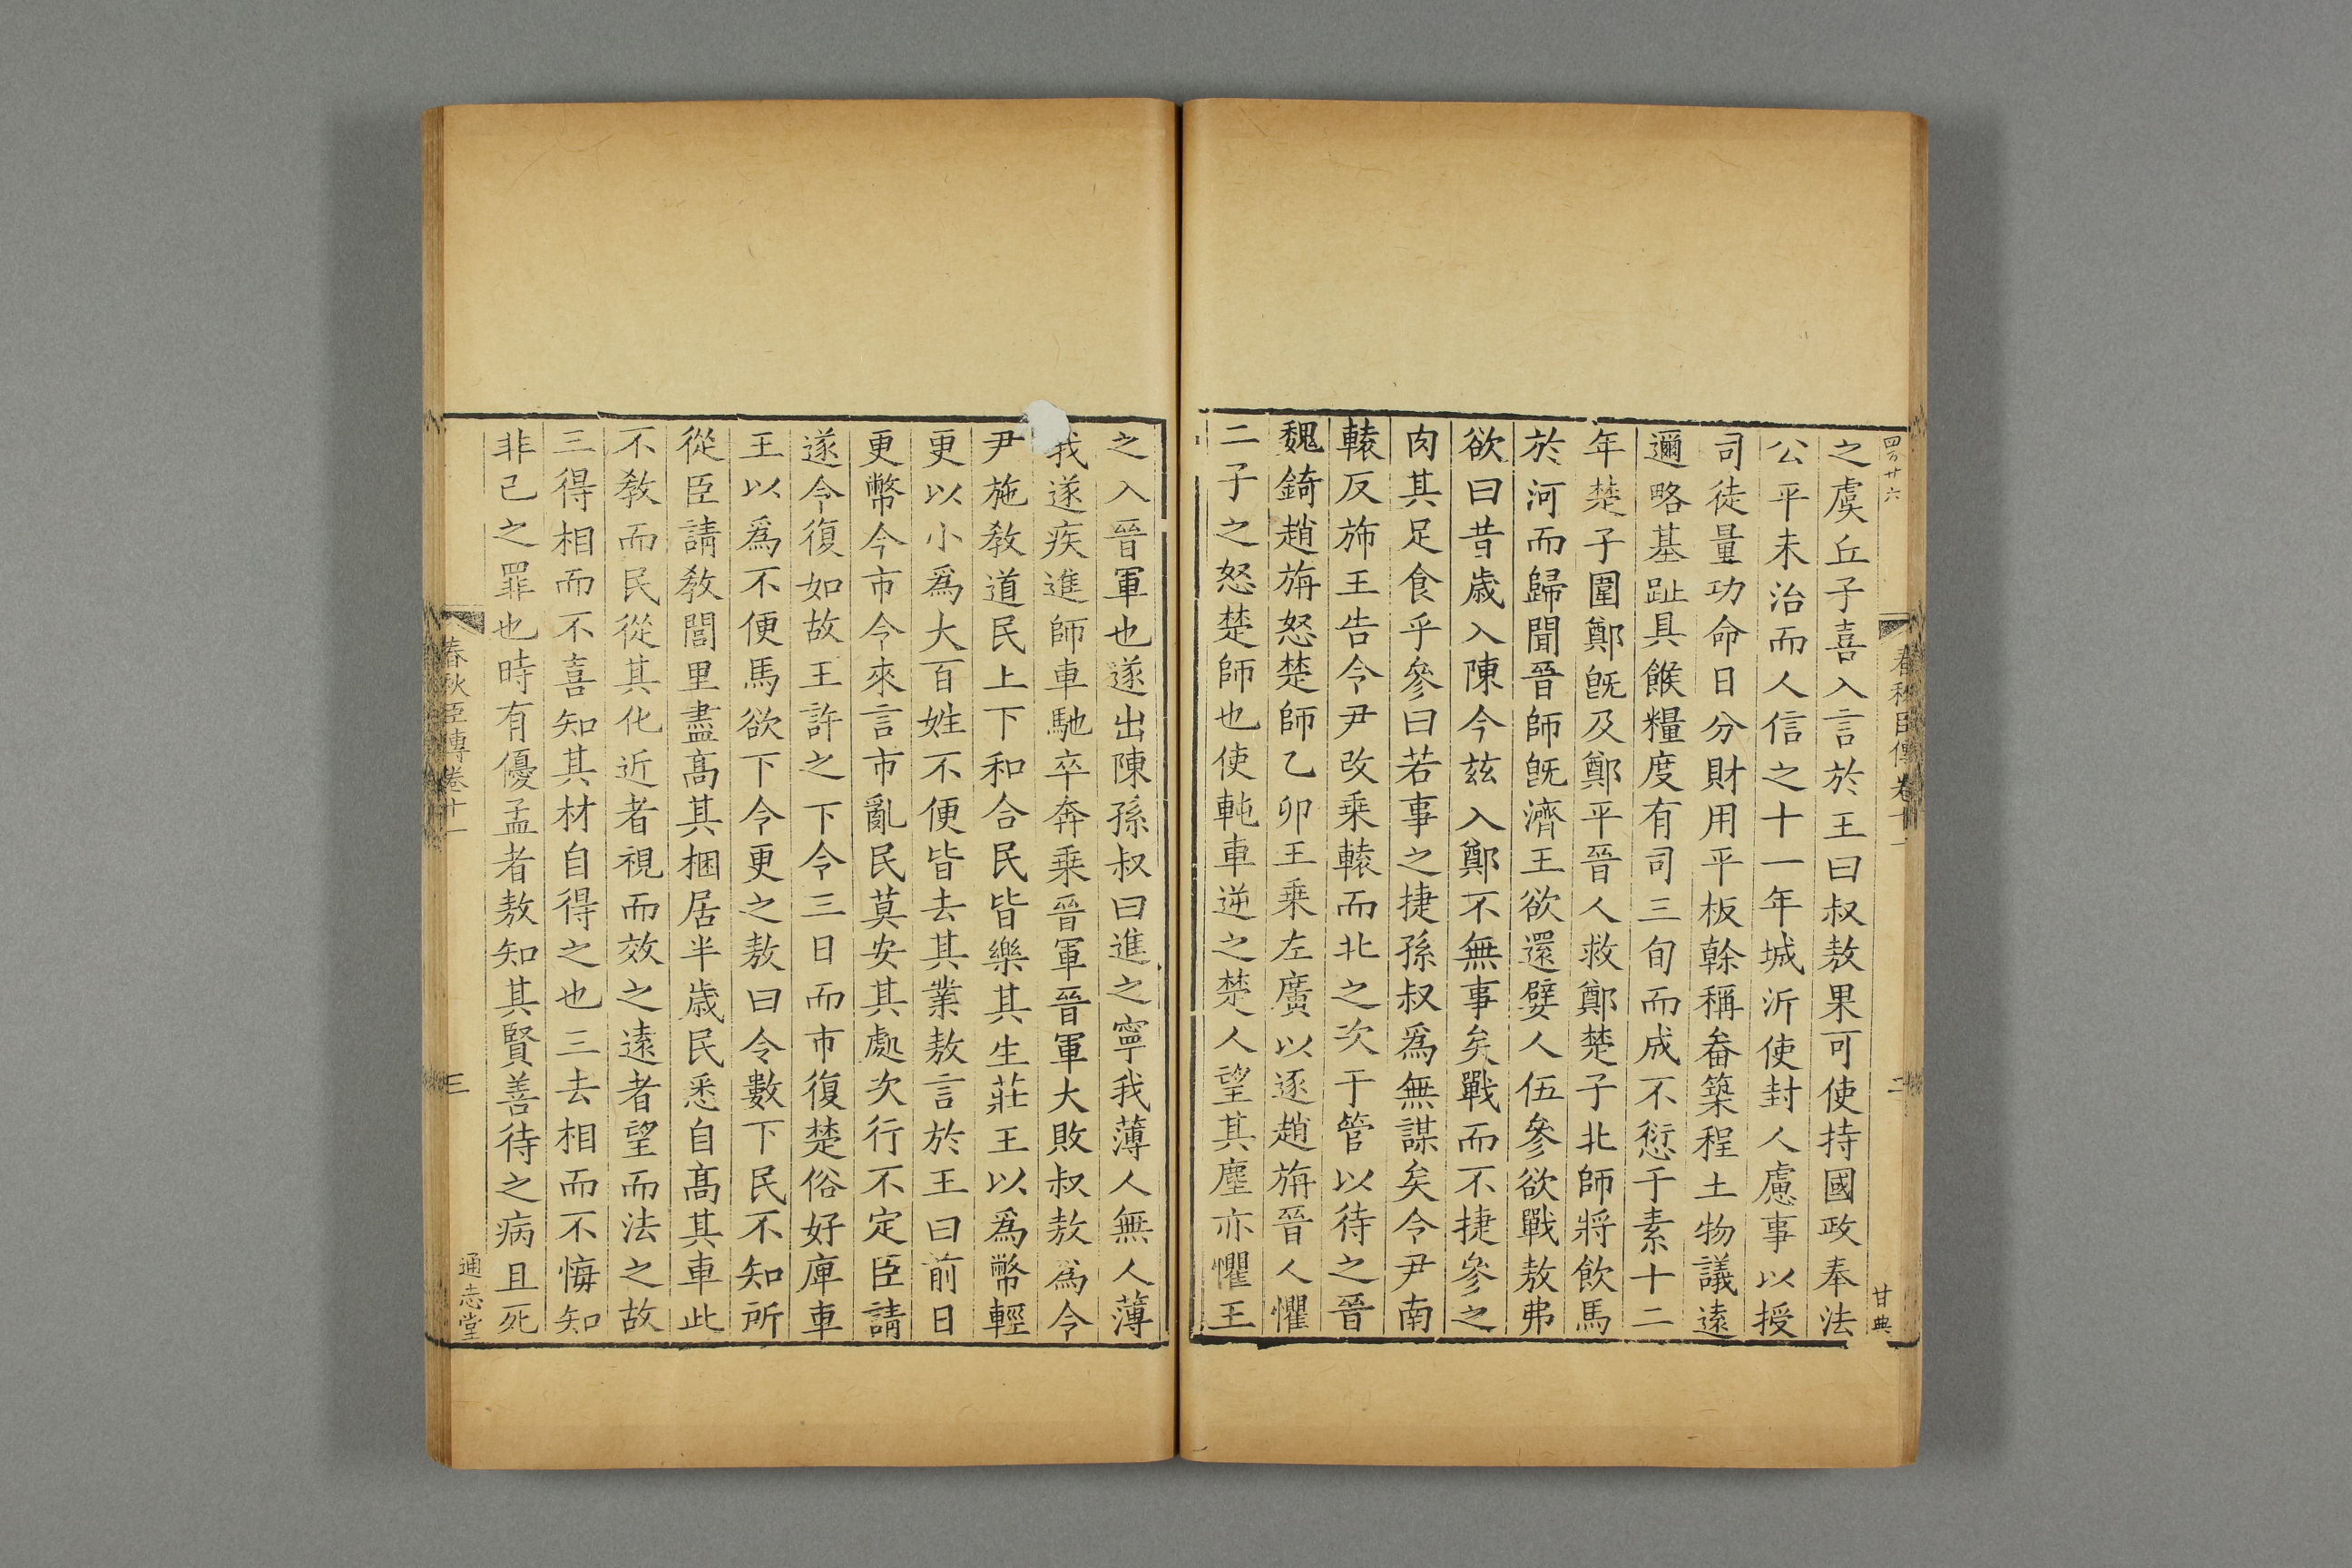 四百廿六
春秋臣傳卷十一
二
甘典
之虞丘子喜入言於王曰叔敖果可使持國政奉法
公平未治而人信之十一年城沂使封人慮事以授
司徒量功命日分財用平板榦稱畚築程土物議遠
邇略基趾具餱糧度有司三旬而成不愆于素十二
年楚子圍鄭旣及鄭平晉人救鄭楚子北師將飲馬
於河而歸聞晉師旣濟王欲還嬖人伍參欲戰敖弗
欲曰昔歳入陳今兹入鄭不無事矣戰而不捷參之
肉其足食乎參曰若事之捷孫叔爲無謀矣令尹南
轅反斾王告令尹改乗轅而北之次于管以待之晉
魏錡趙旃怒楚師乙卯王乗左廣以逐趙旃晉人懼
二子之怒楚師也使軘車逆之楚人望其塵亦懼王
之入晉軍也遂出陳孫叔曰進之寧我薄人無人薄
我遂疾進師車馳卒奔乗晉軍晉軍大敗叔敖爲令
尹施敎道民上下和合民皆樂其生莊王以爲幣輕
更以小爲大百姓不便皆去其業敖言於王曰前日
更幣今市令來言市亂民莫安其處次行不定臣請
遂令復如故王許之下令三日而市復楚俗好庳車
王以爲不便馬欲下令更之敖曰令數下民不知所
從臣請敎閭里盡髙其梱居半歳民悉自髙其車此
不敎而民從其化近者視而效之遠者望而法之故
三得相而不喜知其材自得之也三去相而不悔知
非己之罪也時有優孟者敖知其賢善待之病且死
春秋臣傳卷十一
三
通志堂